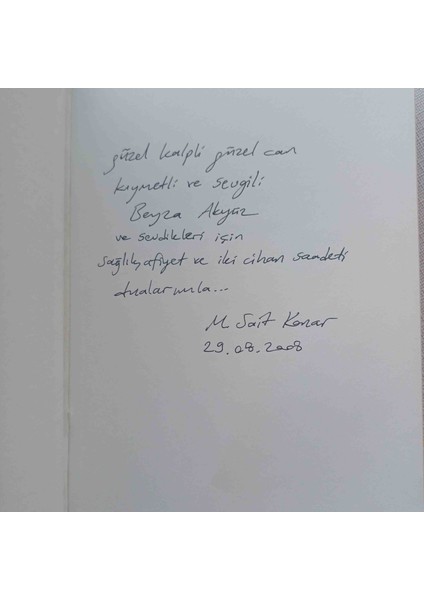 güzel kalpli güzel can
kıymetli ve sevgili
Beyza Akyüz
ve sevdikleri için
sağlık, afiyet ve iki cihan saadeti
dualarımla...
M. Sait Konar
29.08.2008